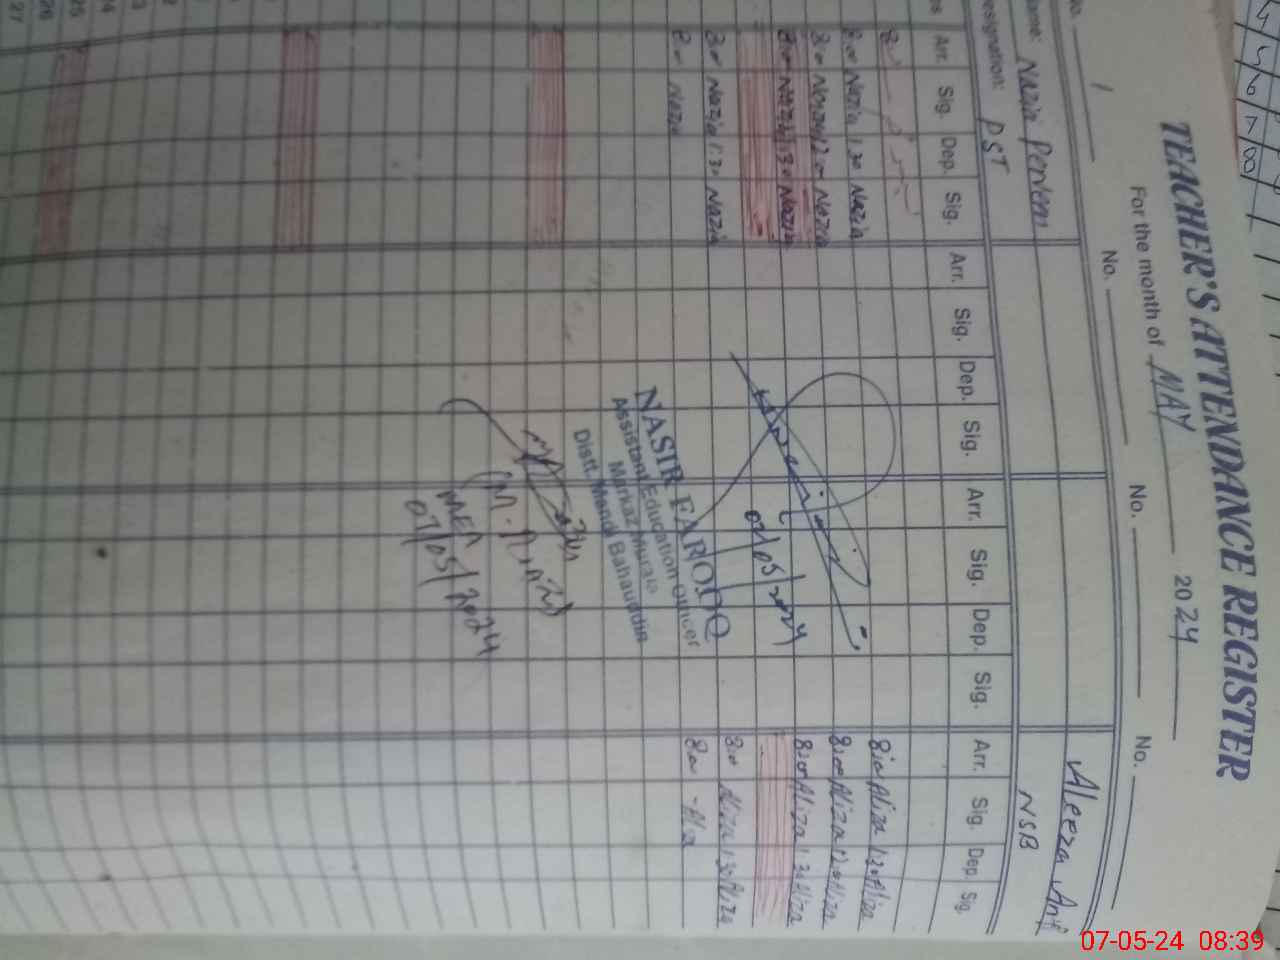 TEACHER'S ATTENDANCE REGISTER
For the month of MAY 2024
No. 1 No. No. No.
Name: Nazia Perveen Aleeza Arif
Designation: PST NSB
Arr. Sig. Dep. Sig. Arr. Sig. Dep. Sig. Arr. Sig. Dep. Sig. Arr. Sig. Dep. Sig.
8:00 Nazia 1:30 Nazia 8:00 Aliza 1:30 Aliza
8:00 Nazia 12:00 Nazia 8:00 Aliza 12:00 Aliza
8:00 Nazia 1:30 Nazia 8:00 Aliza 1:30 Aliza
07/05/2024
8:00 Nazia 1:30 Nazia 8:00 Aliza 1:30 Aliza
8:00 Nazia 8:00 Aliza
NASIR FAROOQ
Assistant Education Officer
Markaz Murala
Distt. Mandi Bahauddin
MEA
07/05/2024
24
25
26
27
07-05-24 08:39